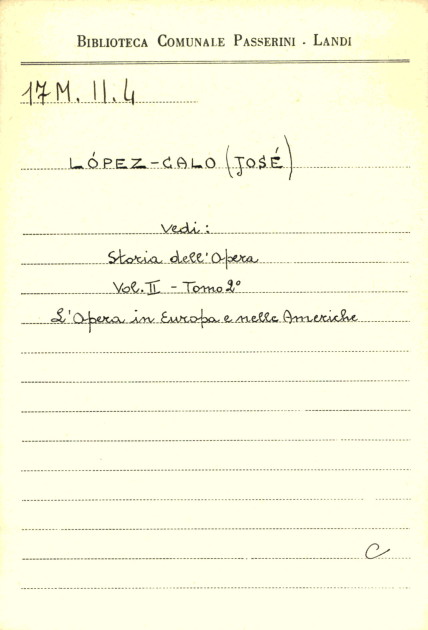 BIBLIOTECA COMUNALE PASSERINI - LANDI
17 M. II. 4
LÓPEZ-CALO (JOSÉ)
Vedi:
Storia dell'Opera
Vol. II - Tomo 2°
L'Opera in Europa e nelle Americhe
C